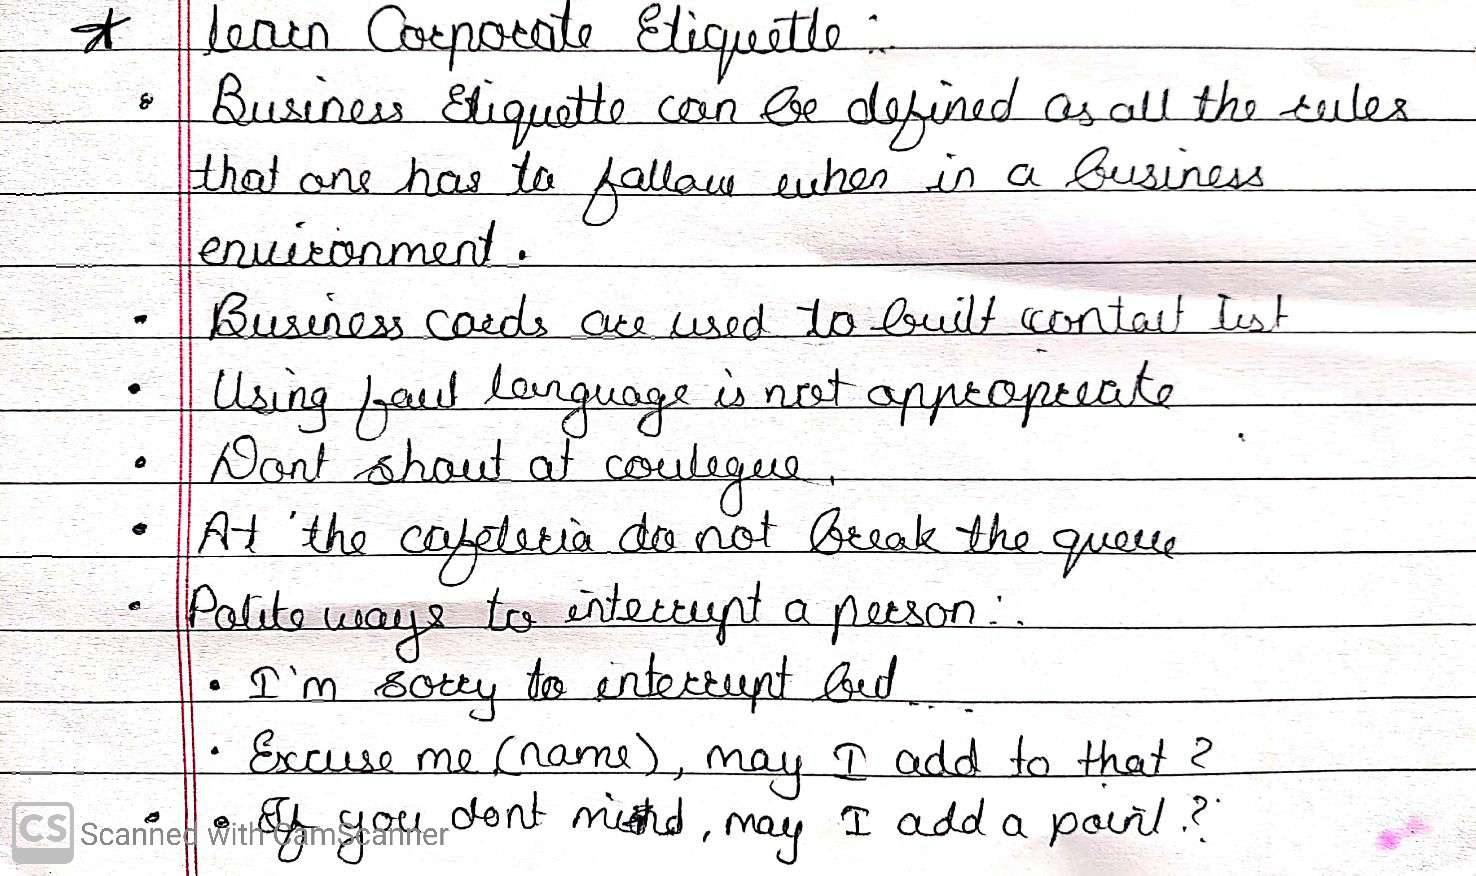 * learn Corporate Etiquette :
• Business Etiquette can be defined as all the rules
that one has to follow when in a business
environment.
• Business cards are used to built contact list
• Using foul language is not appropriate
• Dont shout at coulegue.
• At the cafeteria do not break the queue
• Polite ways to interrupt a person :.
• I'm sorry to interrupt but ....
• Excuse me (name), may I add to that ?
• • If you dont mind, may I add a point ?
CS Scanned with CamScanner